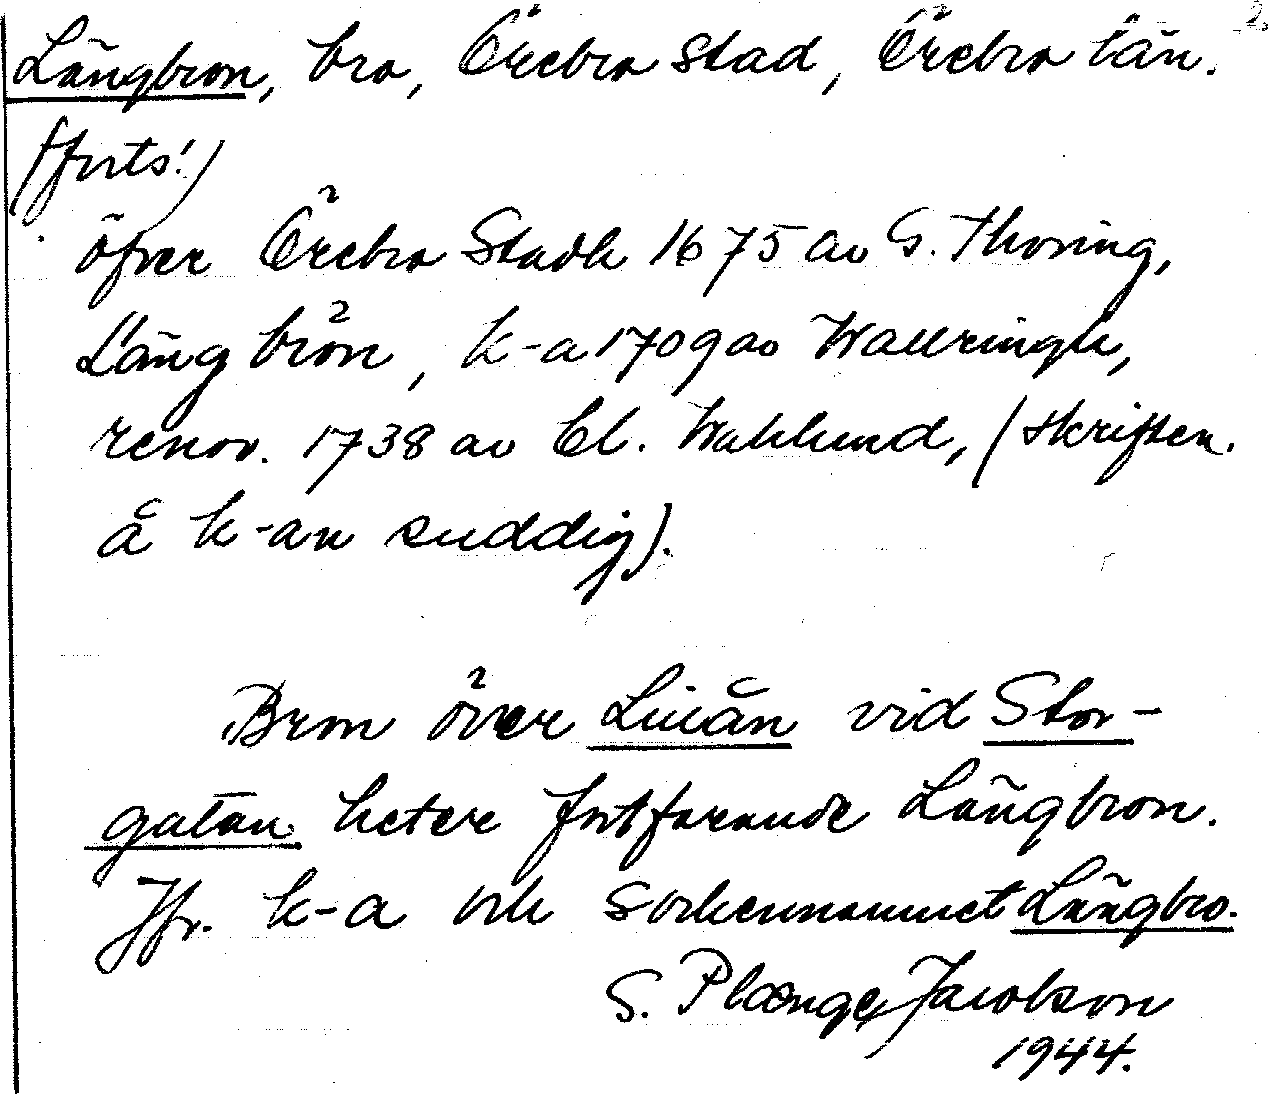 Långbron, bro, Örebro stad, Örebro län. 2.
(forts.)
öfver Örebro Stadh 1675 av G. Thoring,
Lång brön, k-a 1709 av Wallringh,
renov. 1738 av El. Wahlund, (skriften
å k-an suddig).
Bron över Lillån vid Stor-
gatan heter fortfarande Långbron.
Jfr. k-a och sockennamnet Längbro.
S. Plænge Jacobson
1944.